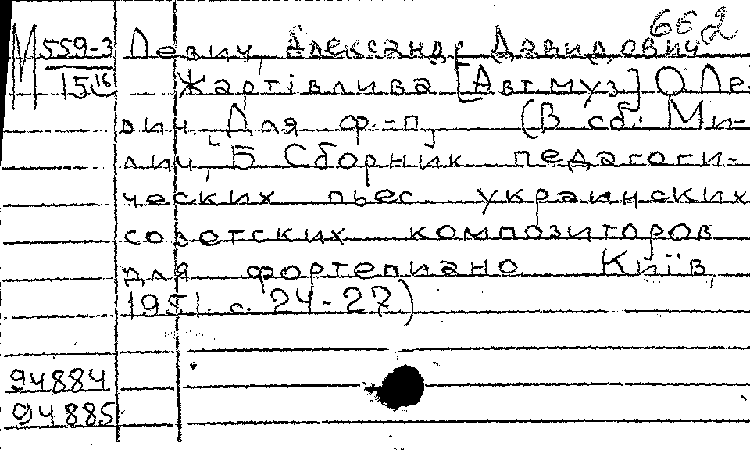 662
М 559-3 Левич, Александр Давидович
15/16 Жартівлива [Авт. муз] О. Ле-
вич, Для ф.-п, (В сб: Ми-
лич, Б Сборник педагоги-
ческих пьес украинских
советских композиторов
для фортепиано Київ,
1951. с. 24-27)
94884
94885